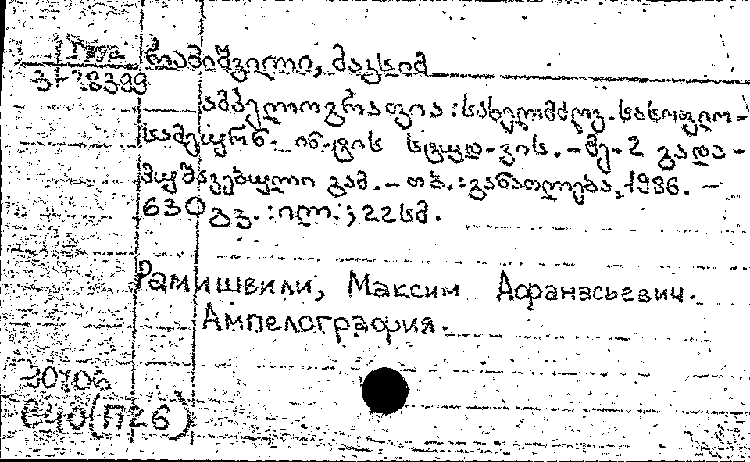 რამიშვილი, მაქსიმ
3-78389
ამპელოგრაფია : სახელმძღვ. სასოფლო-
სამეურნ. ინ-ტის სტუდ-ვის. - მე-2 გადა-
მუშავებული გამ. - თბ. : განათლება, 1986. -
630 გვ. : ილ. ; 22 სმ.
Рамишвили, Максим Афанасьевич.
Ампелография.
(П26)